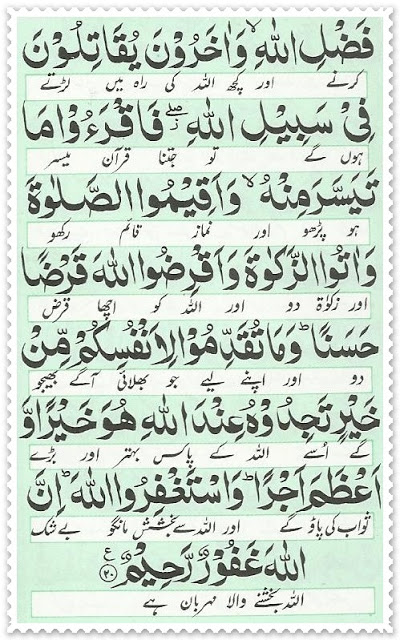 فَضْلِ اللّٰهِ ۙ وَاٰخَرُوْنَ يُقَاتِلُوْنَ
کرنے اور کچھ اللہ کی راہ میں لڑتے
فِيْ سَبِيْلِ اللّٰهِ ۖ فَاقْرَءُوْا مَا
ہوں گے تو جتنا قرآن میسر
تَيَسَّرَ مِنْهُ ۙ وَاَقِيْمُوا الصَّلٰوةَ
ہو پڑھو اور نماز قائم رکھو
وَاٰتُوا الزَّكٰوةَ وَاَقْرِضُوا اللّٰهَ قَرْضًا
اور زکوٰۃ دو اور اللہ کو اچھا قرض
حَسَنًا ؕ وَمَا تُقَدِّمُوْا لِاَنْفُسِكُمْ مِّنْ
دو اور اپنے لیے جو بھلائی آگے بھیجو
خَيْرٍ تَجِدُوْهُ عِنْدَ اللّٰهِ هُوَ خَيْرًا وَّ
گے اُسے اللہ کے پاس بہتر اور بڑے
اَعْظَمَ اَجْرًا ؕ وَاسْتَغْفِرُوا اللّٰهَ ؕ اِنَّ
ثواب کی پاؤ گے اور اللہ سے بخشش مانگو بے شک
اللّٰهَ غَفُوْرٌ رَّحِيْمٌ ۟ ع ۲۰
اللہ بخشنے والا مہربان ہے